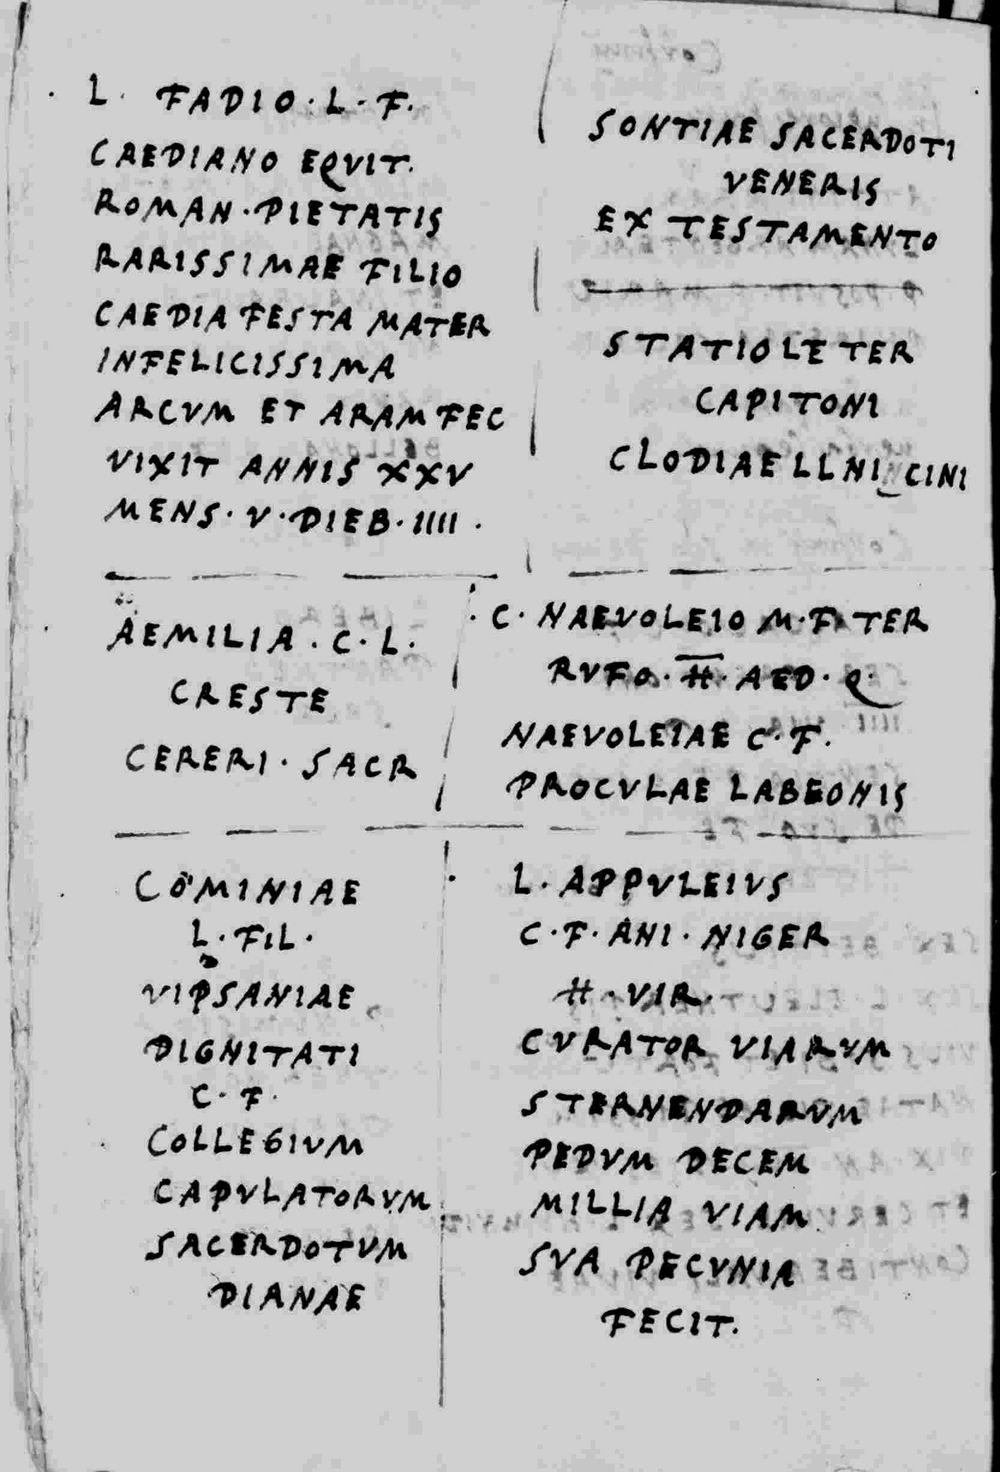 L. FADIO · L · F.
CAEDIANO EQVIT.
ROMAN · PIETATIS
RARISSIMAE FILIO
CAEDIA FESTA MATER
INFELICISSIMA
ARCVM ET ARAM FEC
VIXIT ANNIS XXV
MENS · V · DIEB · IIII ·
SONTIAE SACERDOTI
VENERIS
EX TESTAMENTO
STATIO LE TER
CAPITONI
CLODIAE
AEMILIA . C . L .
CRESTE
CERERI · SACR
C · NAEVOLEIO M · F · TER
RVFO · II · AED · Q ·
NAEVOLEIAE C · F .
PROCVLAE LABEONIS
COMINIAE
L · FIL ·
VIPSANIAE
DIGNITATI
C · F ·
COLLEGIVM
CAPVLATORVM
SACERDOTVM
DIANAE
L . APPVLEIVS
C · F · ANI · NIGER
II · VIR ·
CVRATOR VIARVM
STERNENDARVM
PEDVM DECEM
MILLIA VIAM
SVA PECVNIA
FECIT .